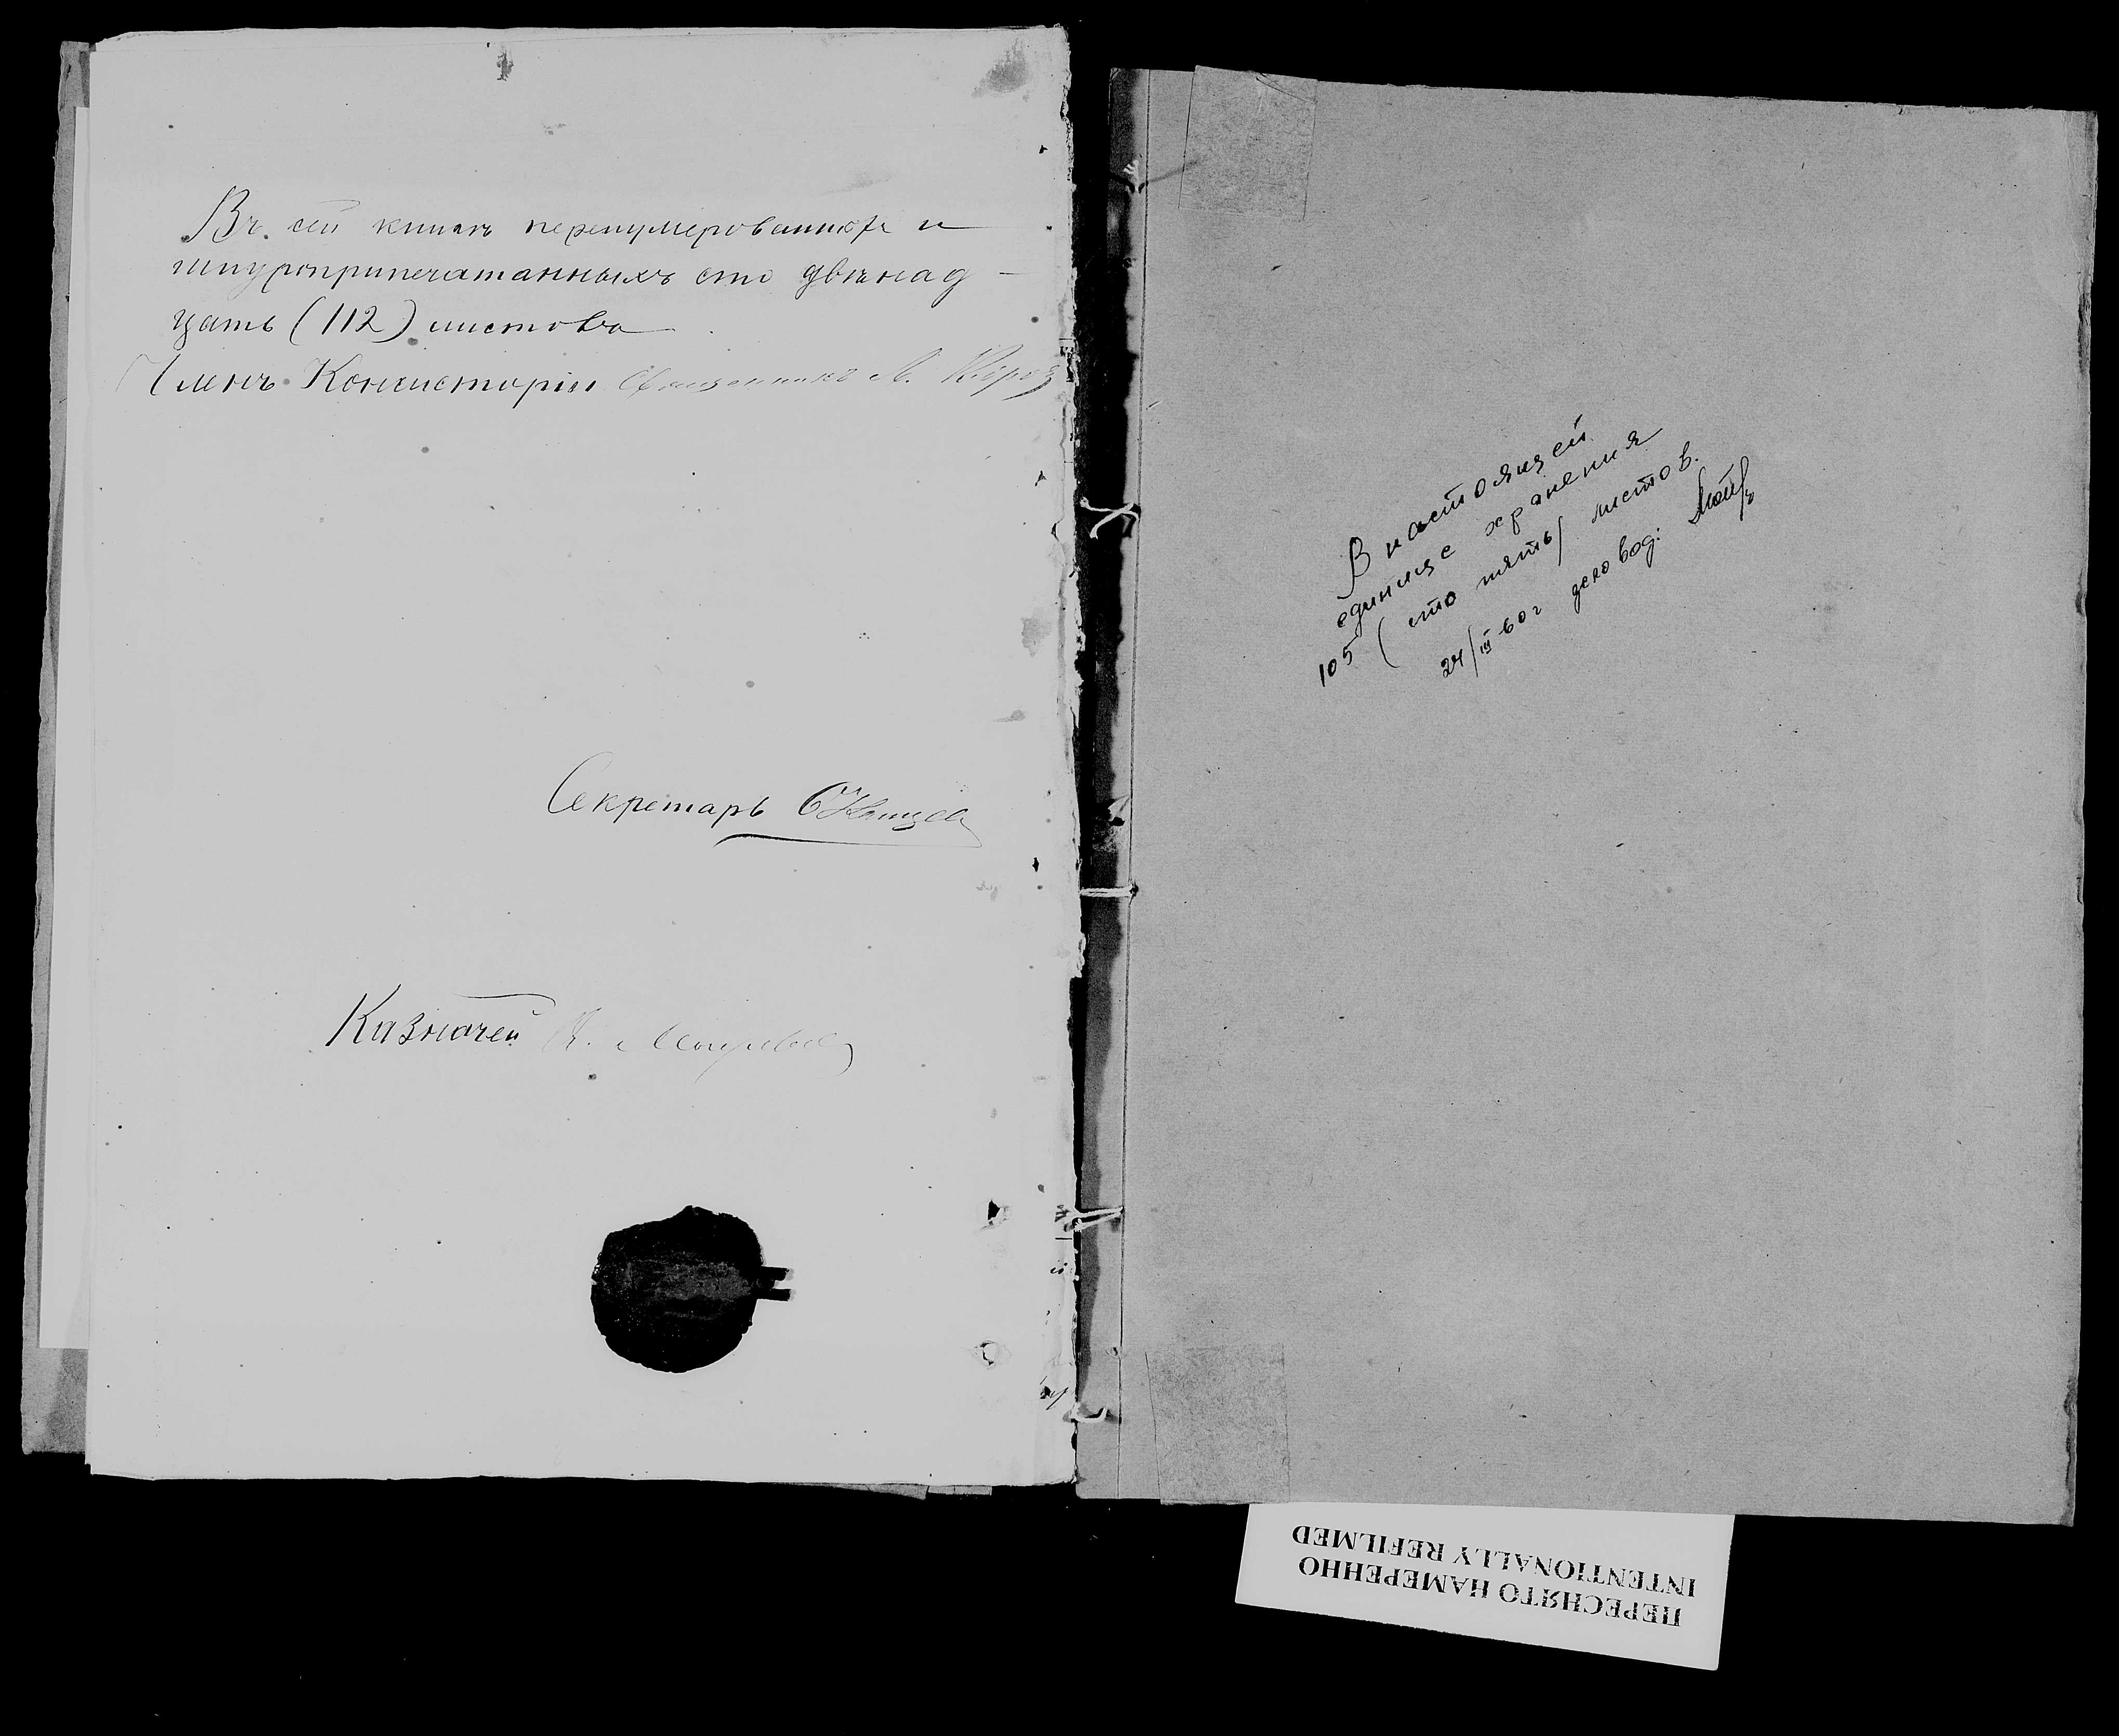 Въ сей книгѣ перенумерованныхъ и
шнуроприпечатанныхъ сто двѣнад-
цать (112) листовъ
Членъ Консисторіи Священникъ А.
Секретарь
Казначей
В настоящей
единице хранения
105 (сто пять) листов.
24/III-60г деловод:
ПЕРЕСНЯТО НАМЕРЕННО
INTENTIONALLY REFILMED